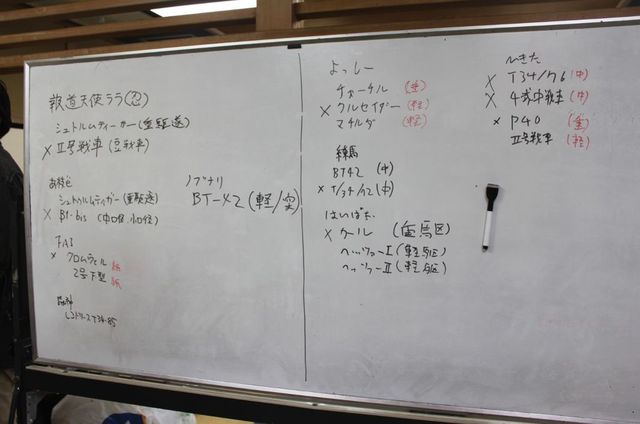 報道天使ララ(忍)
シュトルムティーガー(重駆逐)
× Ⅱ号戦車 (豆戦車)
シュトゥルムティガー(重駆逐)
× B1-bis (中口径,小口径)
ノブナリ
BT-42 (軽/突)
TAS
× クロムウェル
2号F型
T34-85
よっしー
チャーチル (重)
× クルセイダー (軽)
マチルダ (軽)
練馬
BT42 (中)
× T/34/12 (中)
はいばた
× クール (練馬区)
ヘッツァーⅠ (軽駆区)
ヘッツァーⅡ (軽駆区)
ひきた
× T34/76 (中)
× 4式中戦車 (中)
× P40 (重)
Ⅱ号戦車 (軽)